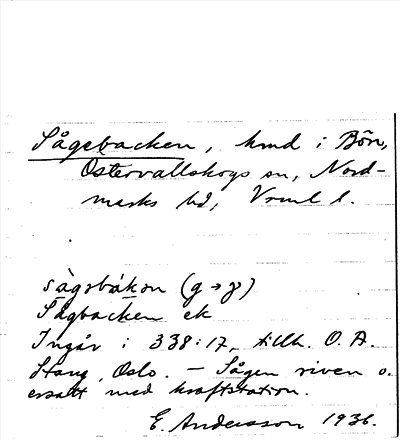 Sågebacken, hmd i Bön,
Östervallskogs sn, Nord-
marks hd, Vrml l.
sàgəbákən (g→ɣ)
Sågbacken ek
Ingår i 338:17, tillh. O. A.
Stang, Oslo. – Sågen riven o.
ersatt med kraftstation.
E. Andersson 1936.